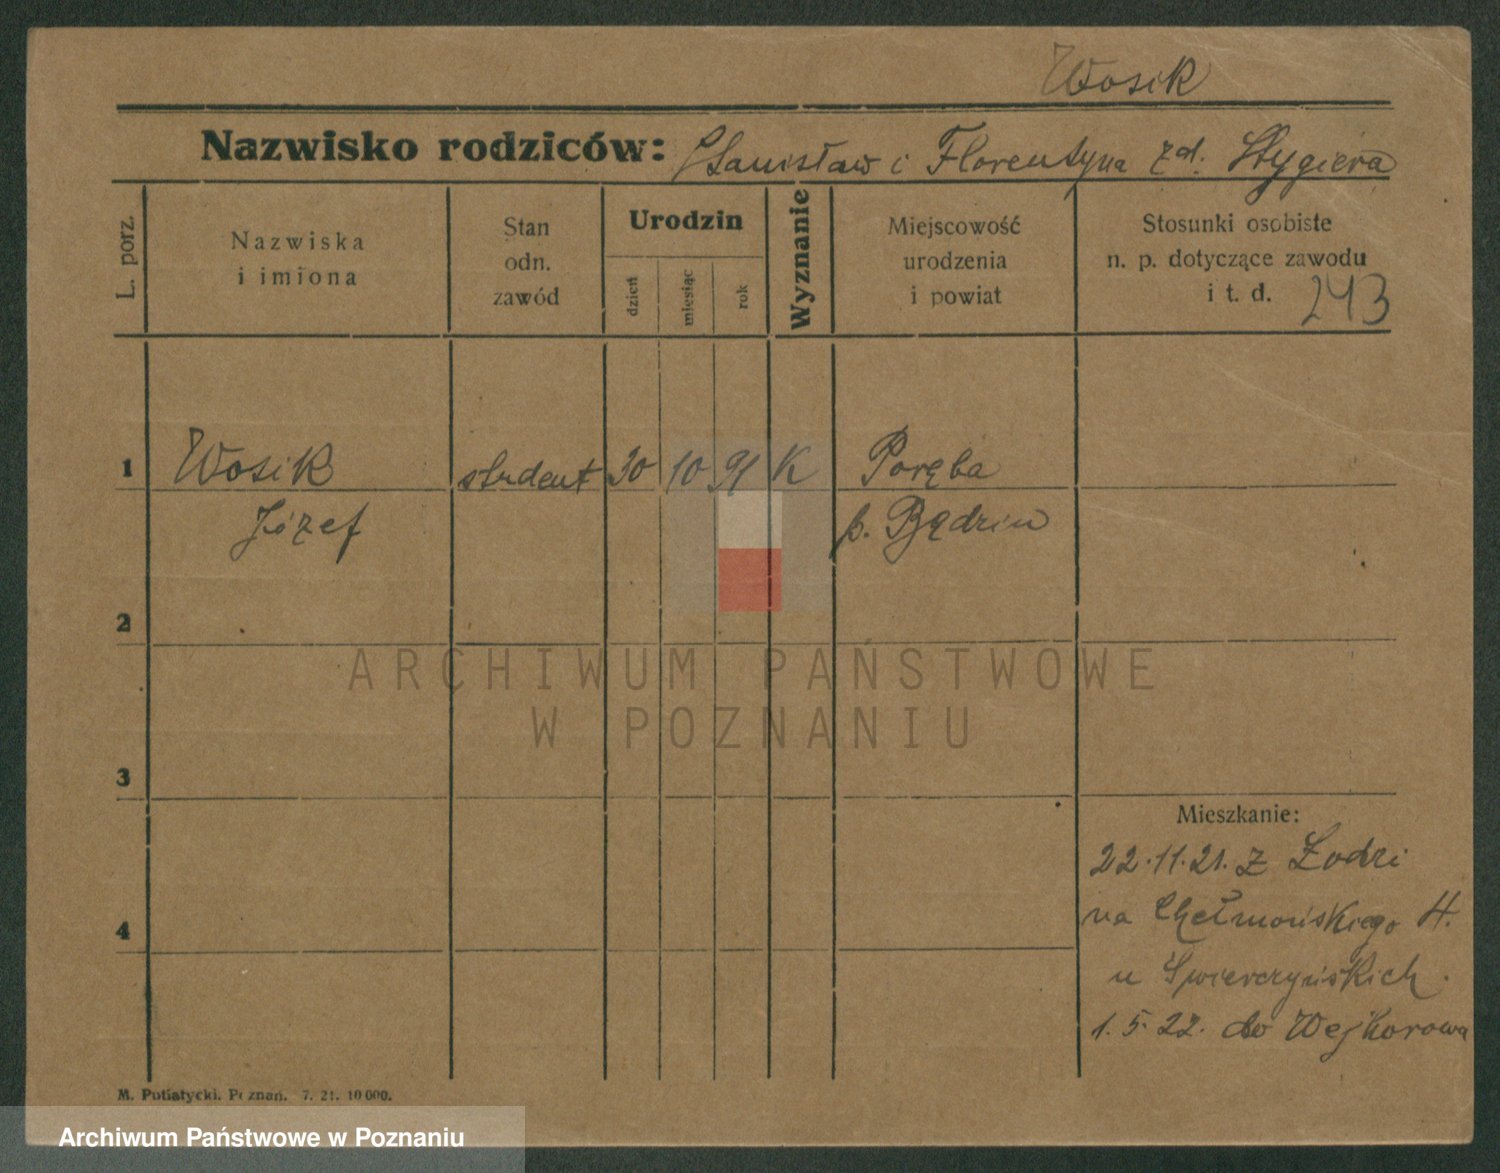 Wosik
Nazwisko rodziców: Stanisław i Florentyna zd. Stygiera
L. porz.
Nazwiska
i imiona
Stan
odn.
zawód
Urodzin
dzień
miesiąc
rok
Wyznanie
Miejscowość
urodzenia
i powiat
Stosunki osobiste
n. p. dotyczące zawodu
i t. d. 243
1 Wosik student 30 10 91 K Poręba
Józef p. Będzin
2
ARCHIWUM PAŃSTWOWE
W POZNANIU
3
Mieszkanie:
22.11.21. z Łodzi
na Chełmońskiego 4.
4
u Świerczyńskich.
1.5.22. do Wejherowa
M. Putiatycki. Poznań. 7. 21. 10 000.
Archiwum Państwowe w Poznaniu